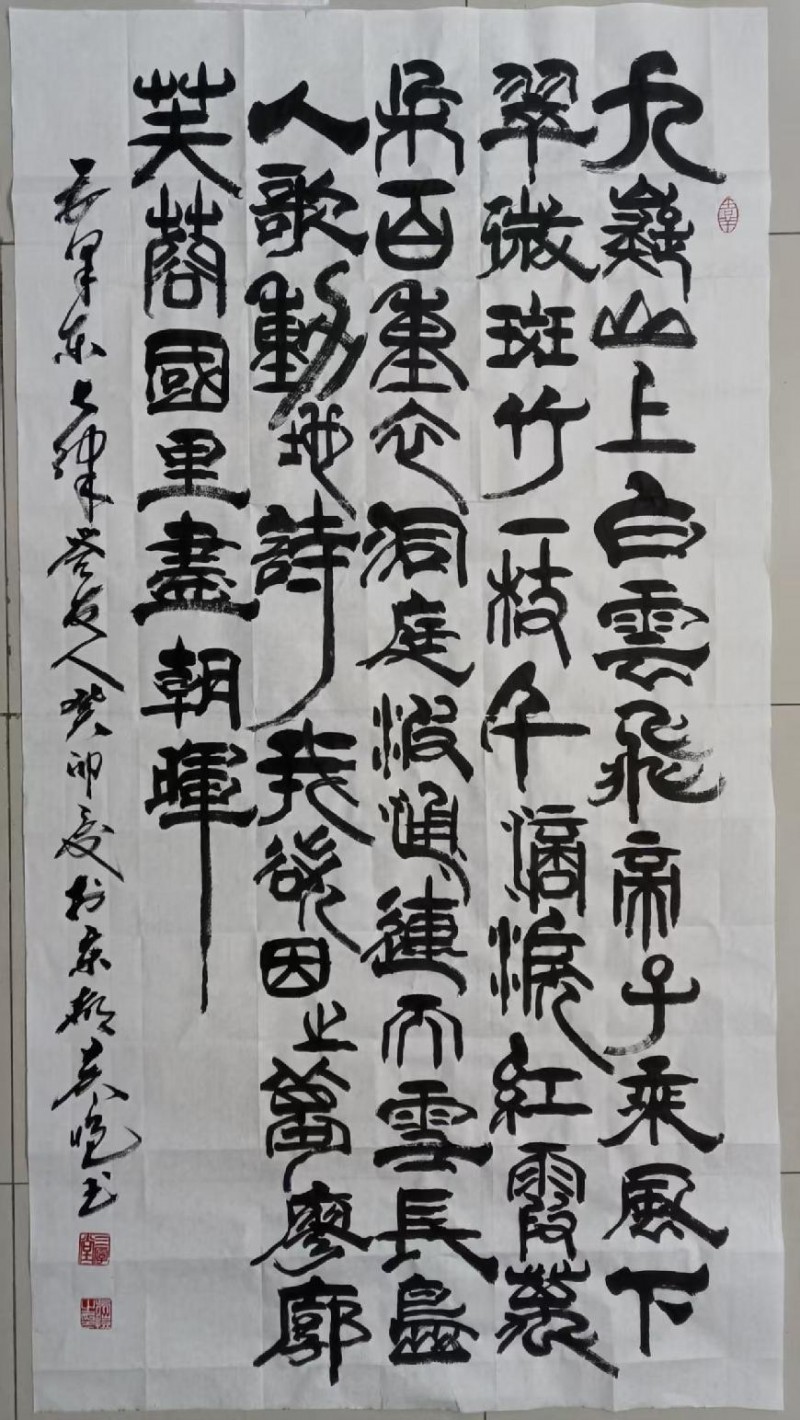 九嶷山上白雲飛帝子乘風下
翠微斑竹一枝千滴淚紅霞萬
朵百重衣洞庭波涌連天雪長島
人歌動地詩我欲因之夢廖廓
芙蓉國里盡朝暉
毛泽东七律答友人癸卯夏於